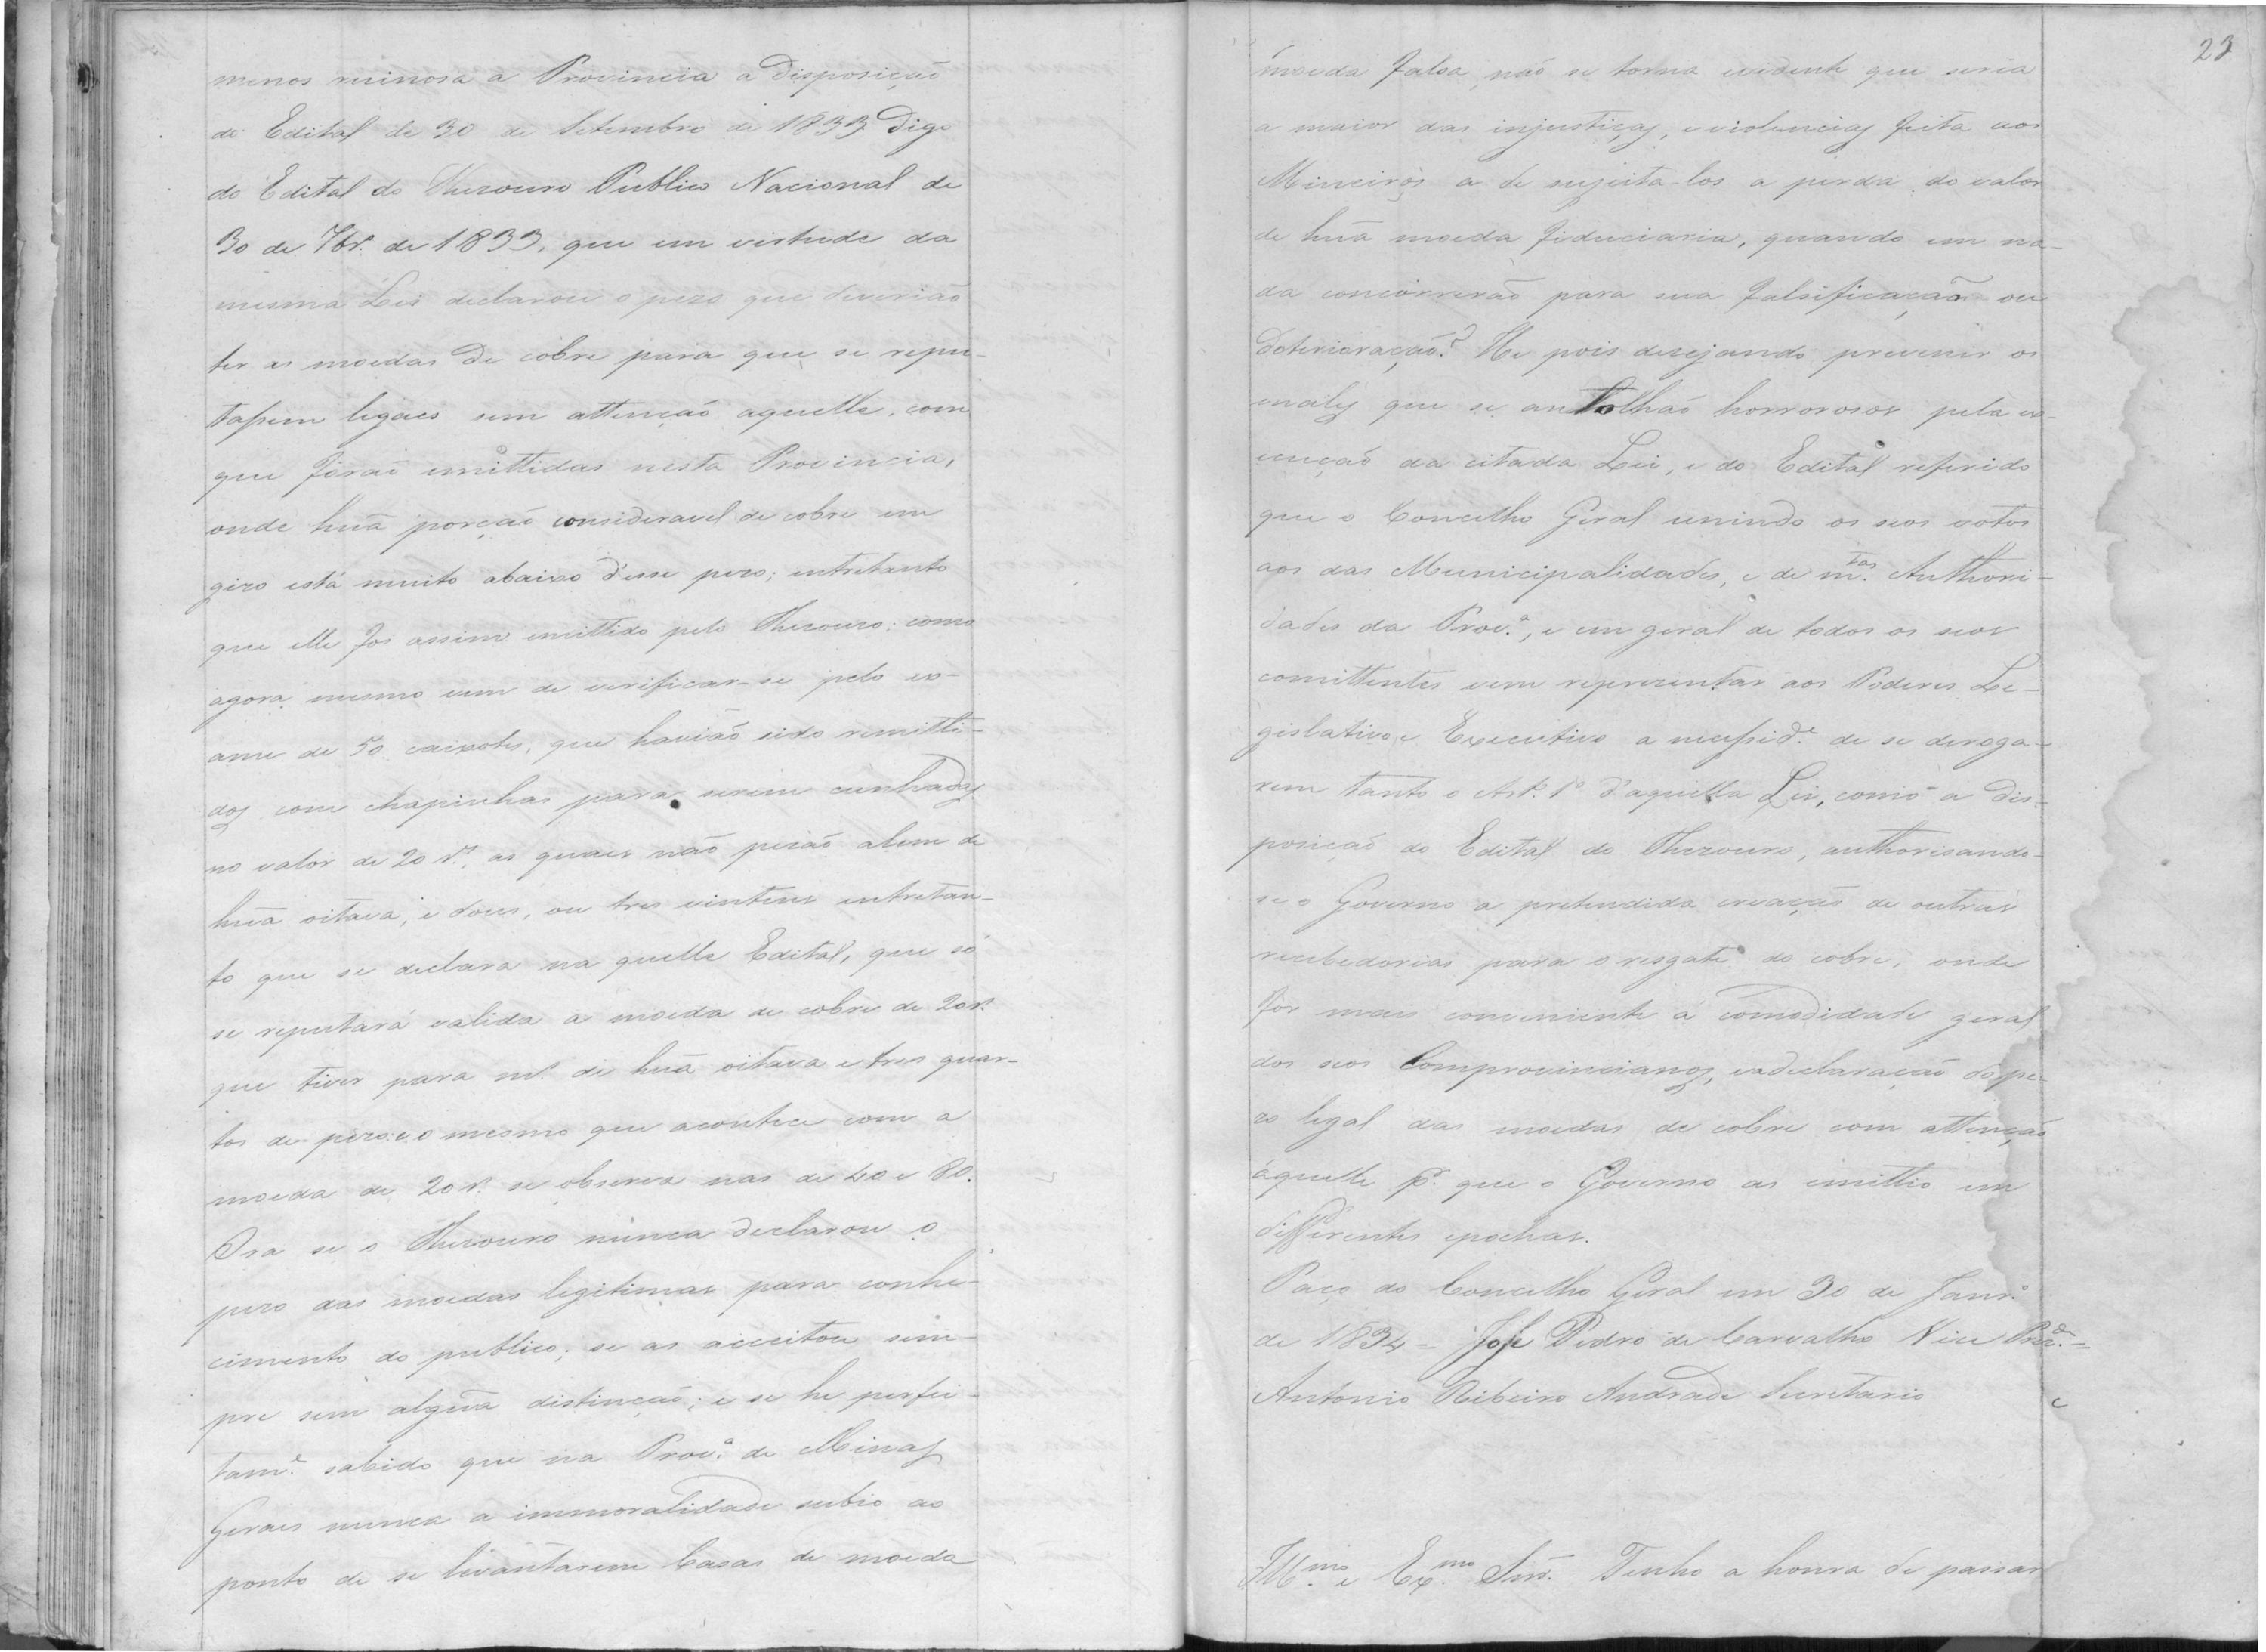 menos ruinosa a Provincia a disposição
do Edital de 30 de Setembro de 1833 Digo
do Edital do Thezouro Publico Nacional de
30 de 7br.º de 1833, que em virtude da
mesma Lei declarou o pezo que deverião
ter as moedas de cobre para que se repu-
tassem legaes sem attenção aquelle, com
que forão emittidas nesta Provincia,
onde huã porção consideravel de cobre em
giro está muito abaixo d'esse pezo; entretanto
que elle foi assim emittido pelo Thezouro; como
agora mesmo vem de verificar-se pelo ex-
ame de 50 caixotes, que havião sido remetti-
dos com chapinhas para serem cunhadas
no valor de 20 r.s, as quaes não pesão alem de
huã oitava, e dous, ou tres vintens entretan-
to que se declara na quelle Edital, que só
se reputará valida a moeda de cobre de 20 r.s
que tiver para m.s de huã oitava e tres quar-
tos de pezo: e o mesmo que acontece com a
moeda de 20 r.s se observa nas de 40 e 80.
Ora se o Thezouro nunca declarou o
pezo das moedas legitimas para conhe-
cimento do publico; se as acceitou sem-
pre sem algũa distincção; e se he perfei-
tam.e sabido que na Prov.a de Minas
Geraes nunca a immoralidade subio ao
ponto de se levantarem Casas de moeda
23
moeda falsa, não se torna evidente que seria
a maior das injustiças, e violencias feita aos
Mineiros a de sujeita-los a perda do valor
de huã moeda fiduciaria, quando em na-
da concorrerão para sua falsificação ou
deterioração? He pois desejando prevenir os
males que se antolhão horrorosos pela ex-
ecução da citada Lei, e do Edital referido
que o Concelho Geral unindo os seos votos
aos das Municipalidades, e de m.tas Authori-
dades da Prov.a, e em geral de todos os seos
comittentes vem reprezentar aos Poderes Le-
gislativo e Executivo a necessid.e de se deroga-
rem tanto o Art. 1º d'aquella Lei, como a dis-
posição do Edital do Thezouro, authorisando-
se o Governo a pretendida creação de outras
recebedorias para o resgate do cobre, onde
for mais conveniente á comodidade geral
dos seos Comprovincianos, e a declaração do pe-
zo legal das moedas de cobre com attenção
áquelle p.r que o Governo as emittio em
differentes epochas.
Paço do Concelho Geral em 30 de Janr.º
de 1834 = José Pedro de Carvalho Vice Prez.de =
Antonio Ribeiro Andrade Secretario
Ill.mo e Ex.mo Snr. Tenho a honra de passar